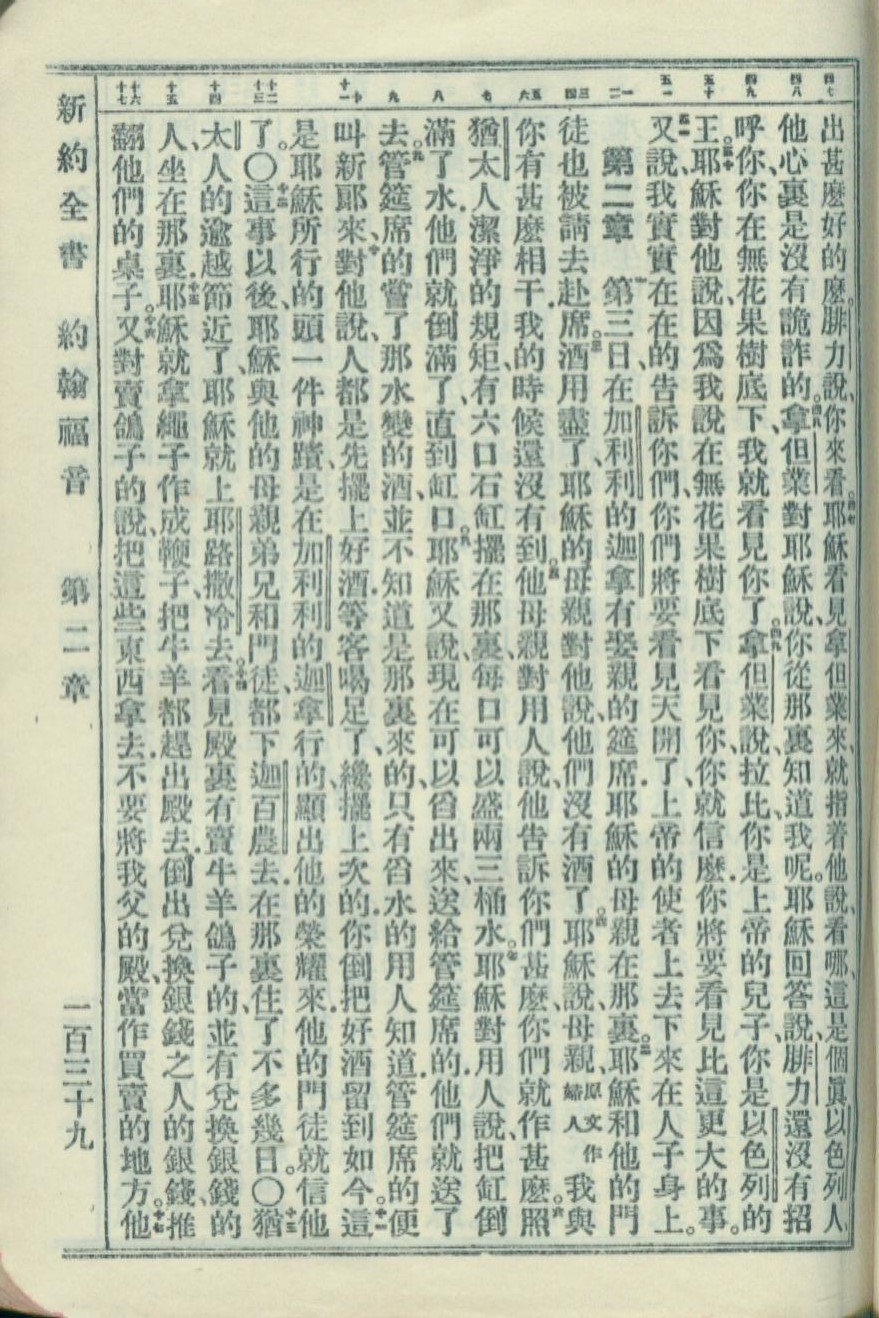 四七 四八 四九 五十 五一 一 二 三 四 五 六 七 八 九 十 十一 十二 十三 十四 十五 十六 十七
出甚麼好的麼。腓力說、你來看。四七耶穌看見拿但業來、就指着他說、看哪、這是個眞以色列人、
他心裏是沒有詭詐的。四八拿但業對耶穌說、你從那裏知道我呢。耶穌回答說、腓力還沒有招
呼你、你在無花果樹底下、我就看見你了。四九拿但業說、拉比、你是上帝的兒子、你是以色列的
王。五十耶穌對他說、因爲我說在無花果樹底下看見你、你就信麼、你將要看見比這更大的事。
五一又說、我實實在在的告訴你們、你們將要看見天開了、上帝的使者上去下來在人子身上。
第二章 一第三日在加利利的迦拿有娶親的筵席、耶穌的母親在那裏。二耶穌和他的門
徒也被請去赴席。三酒用盡了、耶穌的母親對他說、他們沒有酒了。四耶穌說、母親、原文作婦人我與
你有甚麼相干、我的時候還沒有到。五他母親對用人說、他告訴你們甚麼、你們就作甚麼。六照
猶太人潔淨的規矩、有六口石缸擺在那裏、每口可以盛兩三桶水。七耶穌對用人說、把缸倒
滿了水、他們就倒滿了、直到缸口。八耶穌又說、現在可以舀出來、送給管筵席的、他們就送了
去。九管筵席的嘗了那水變的酒、並不知道是那裏來的、只有舀水的用人知道、管筵席的便
叫新郎來、十對他說、人都是先擺上好酒、等客喝足了、纔擺上次的、你倒把好酒留到如今。十一這
是耶穌所行的頭一件神蹟、是在加利利的迦拿行的、顯出他的榮耀來、他的門徒就信他
了。〇十二這事以後、耶穌與他的母親弟兄和門徒都下迦百農去、在那裏住了不多幾日。〇十三猶
太人的逾越節近了、耶穌就上耶路撒冷去。十四看見殿裏有賣牛羊鴿子的、並有兌換銀錢的
人、坐在那裏、十五耶穌就拿繩子作成鞭子、把牛羊都趕出殿去、倒出兌換銀錢之人的銀錢、推
翻他們的桌子。十六又對賣鴿子的說、把這些東西拿去、不要將我父的殿、當作買賣的地方。十七他
新約全書 約翰福音 第二章 一百三十九